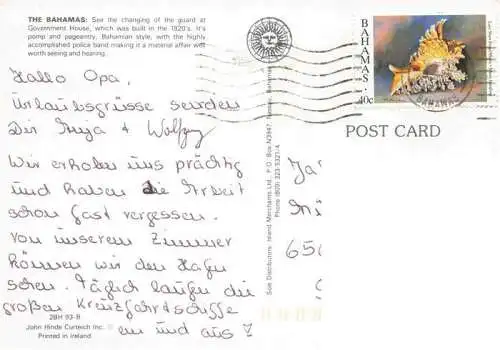 THE BAHAMAS: See the changing of the guard at
Government House, which was built in the 1920's. It's
pomp and pageantry, Bahamian style, with the highly
accomplished police band making it a material affair well
worth seeing and hearing.
Hallo Opa,
Urlaubsgrüsse senden
Dir Inga & Wolfgang
Wir erholen uns prächtig
und haben die Arbeit
schon fast vergessen.
Von unserem Zimmer
können wir den Hafen
sehen. Täglich laufen die
großen Kreuzfahrtschiffe
ein und aus
2BH 93-B
John Hinde Curteich Inc. ©
Printed in Ireland
Sole Distributors: Island Merchants Ltd., P.O. Box N3947 Nassau, Bahamas
Phone (809) 323-5321/4
BAHAMAS
40c
BAHAMAS
POST CARD
Ja
65